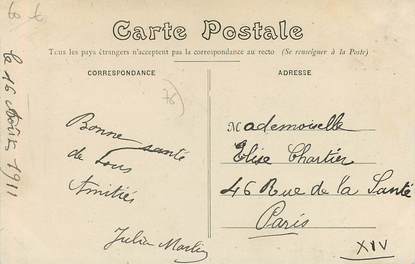 Carte Postale
Tous les pays étrangers n'acceptent pas la correspondance au recto (Se renseigner à la Poste)
CORRESPONDANCE
ADRESSE
le 16 Août 1911
76
Bonne santé
de tous
Amitiés
Julia
Mademoiselle
Elise Chartier
46 Rue de la Santé
Paris
XIV